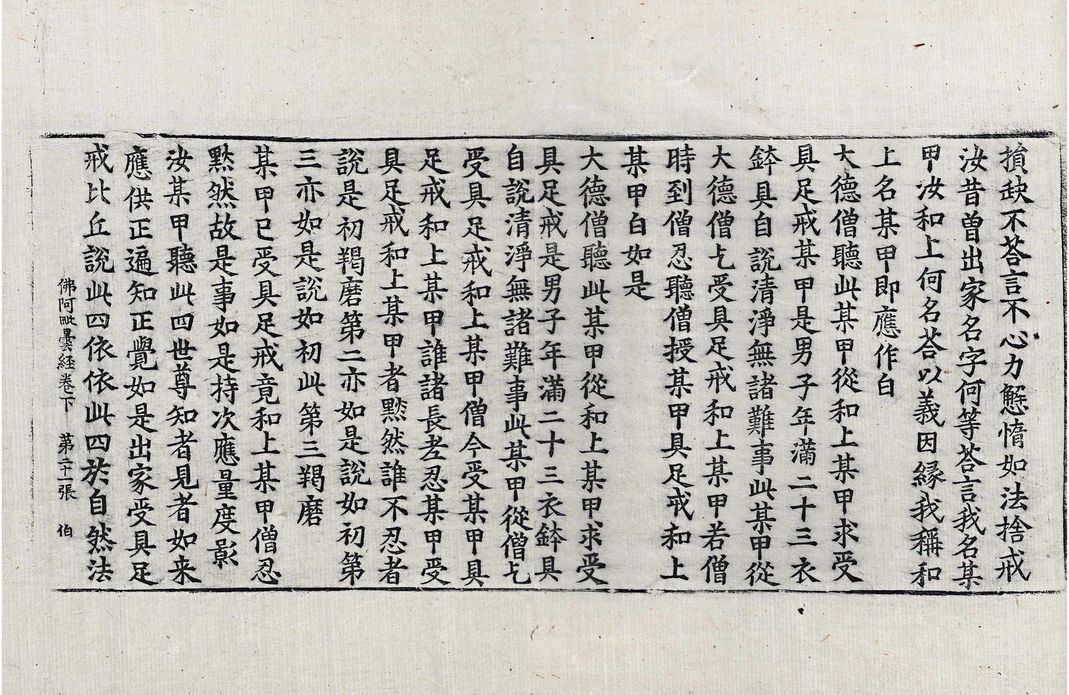 損缺不荅言不心力懈惰如法捨戒
汝昔曽出家名字何等荅言我名某
甲汝和上何名荅以義因縁我稱和
上名某甲即應作白
大德僧聽此某甲從和上某甲求受
具足戒某甲是男子年滿二十三衣
鉢具自說清淨無諸難事此某甲從
大德僧乞受具足戒和上某甲若僧
時到僧忍聽僧授某甲具足戒和上
某甲白如是
大德僧聽此某甲從和上某甲求受
具足戒是男子年滿二十三衣鉢具
自說清淨無諸難事此某甲從僧乞
受具足戒和上某甲僧今受某甲具
足戒和上某甲誰諸長老忍某甲受
具足戒和上某甲者黙然誰不忍者
說是初羯磨第二亦如是說如初第
三亦如是說如初此第三羯磨
某甲已受具足戒竟和上某甲僧忍
黙然故是事如是持次應量度影
汝某甲聽此四世尊知者見者如来
應供正遍知正覺如是出家受具足
戒比丘說此四依依此四於自然法
佛阿毗曇経卷下 第二十一張 伯